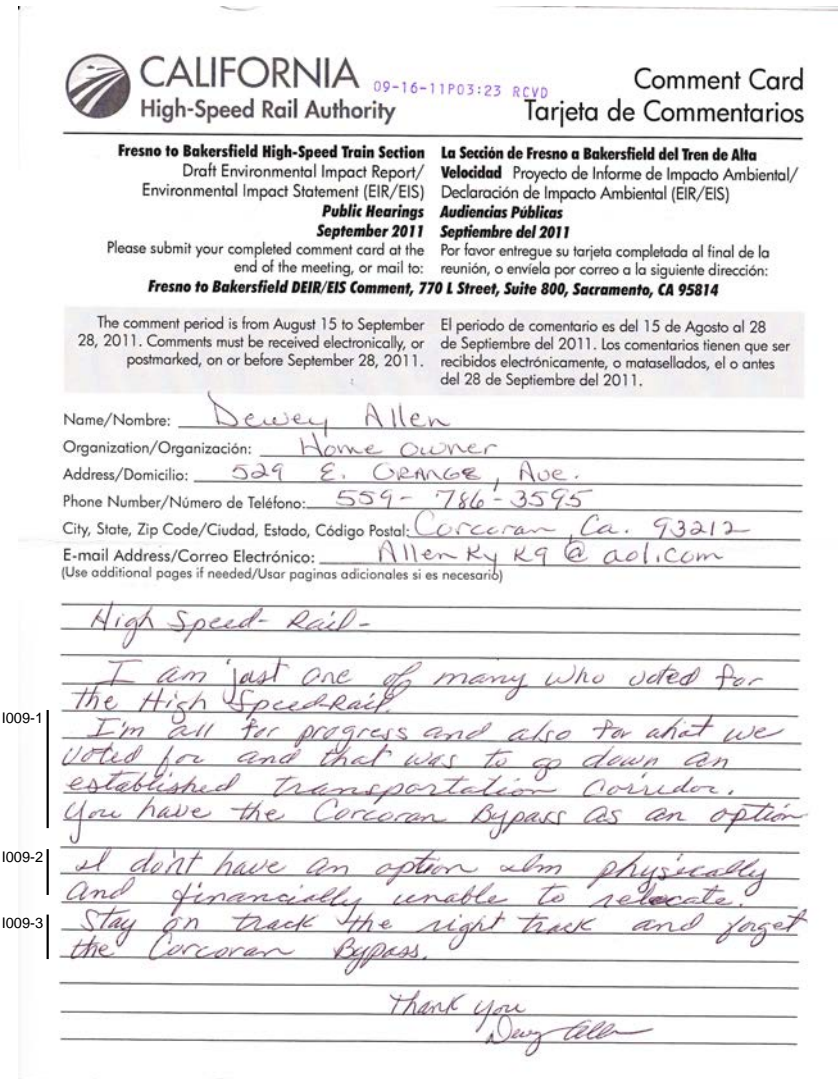 CALIFORNIA
High-Speed Rail Authority
09-16-11P03:23 RCVD
Comment Card
Tarjeta de Commentarios
Fresno to Bakersfield High-Speed Train Section
Draft Environmental Impact Report/
Environmental Impact Statement (EIR/EIS)
Public Hearings
September 2011
Please submit your completed comment card at the
end of the meeting, or mail to:
La Sección de Fresno a Bakersfield del Tren de Alta
Velocidad Proyecto de Informe de Impacto Ambiental/
Declaración de Impacto Ambiental (EIR/EIS)
Audiencias Públicas
Septiembre del 2011
Por favor entregue su tarjeta completada al final de la
reunión, o envíela por correo a la siguiente dirección:
Fresno to Bakersfield DEIR/EIS Comment, 770 L Street, Suite 800, Sacramento, CA 95814
The comment period is from August 15 to September
28, 2011. Comments must be received electronically, or
postmarked, on or before September 28, 2011.
El periodo de comentario es del 15 de Agosto al 28
de Septiembre del 2011. Los comentarios tienen que ser
recibidos electrónicamente, o matasellados, el o antes
del 28 de Septiembre del 2011.
Name/Nombre: Dewey Allen
Organization/Organización: Home owner
Address/Domicilio: 529 E. ORANGE, Ave.
Phone Number/Número de Teléfono: 559-786-3595
City, State, Zip Code/Ciudad, Estado, Código Postal: Corcoran, Ca. 93212
E-mail Address/Correo Electrónico: AllenKyK9@aol.com
(Use additional pages if needed/Usar paginas adicionales si es necesario)
High Speed-Rail-
I am just one of many who voted for
the High Speed-Rail.
I009-1
I'm all for progress and also for what we
voted for and that was to go down an
established transportation Corridor.
You have the Corcoran Bypass as an option
I009-2
I don't have an option I'm physically
and financially unable to relocate.
I009-3
Stay on track the right track and forget
the Corcoran Bypass.
Thank you
Dewey Allen